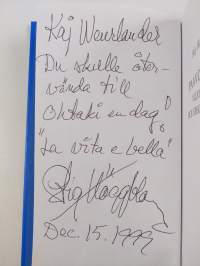 Kaj Weurlander
Du skulle åter-
vända till
Ohtaki en dag!
"La vita e bella"
Stig Häggblom
Dec. 15. 1999